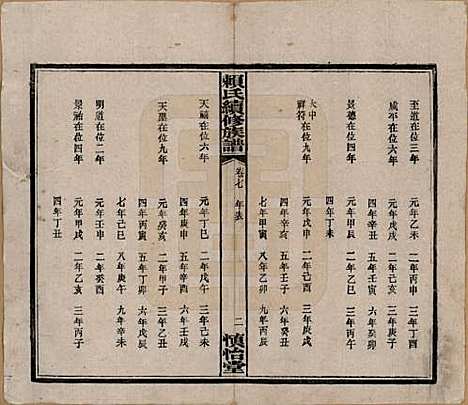 至道在位三年
元年乙未　二年丙申　三年丁酉
咸平在位六年
元年戊戌　二年己亥　三年庚子
四年辛丑　五年壬寅　六年癸卯
景德在位四年
元年甲辰　二年乙巳　三年丙午
四年丁未
大中祥符在位九年
元年戊申　二年己酉　三年庚戌
四年辛亥　五年壬子　六年癸丑
七年甲寅　八年乙卯　九年丙辰
賴氏續修族譜
卷七　年表
二
慎怡堂
天禧在位六年
元年丁巳　二年戊午　三年己未
四年庚申　五年辛酉　六年壬戌
天聖在位九年
元年癸亥　二年甲子　三年乙丑
四年丙寅　五年丁卯　六年戊辰
七年己巳　八年庚午　九年辛未
明道在位二年
元年壬申　二年癸酉
景祐在位四年
元年甲戌　二年乙亥　三年丙子
四年丁丑